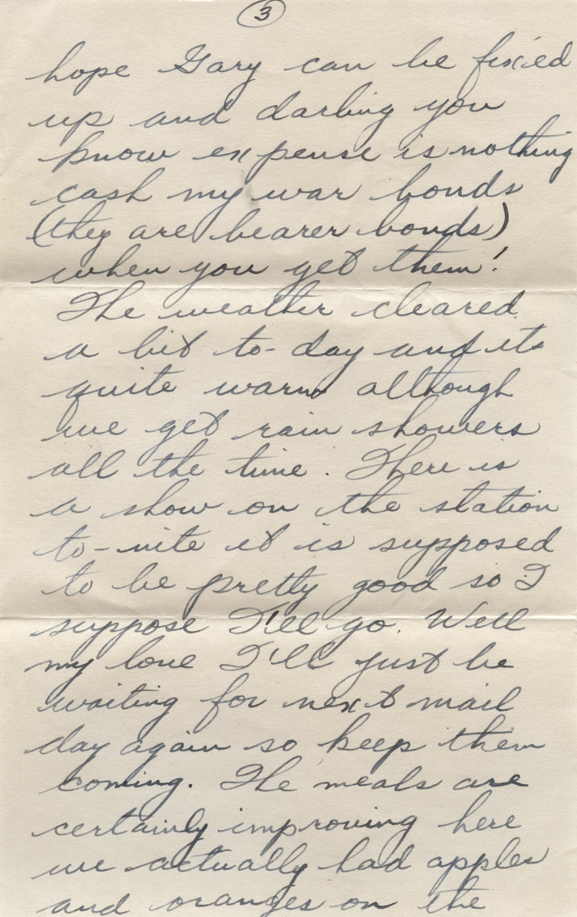 3
hope Gary can be fixied
up and darling you
know expense is nothing
cash my war bonds
(they are bearer bonds)
when you get them!
The weather cleared
a bit to-day and its
quite warm although
we get rain showers
all the time. There is
a show on the station
to-nite it is supposed
to be pretty good so I
suppose I'll go. Well
my love I'll just be
waiting for next mail
day again so keep them
coming. The meals are
certainly improving here
we actually had apples
and oranges on the